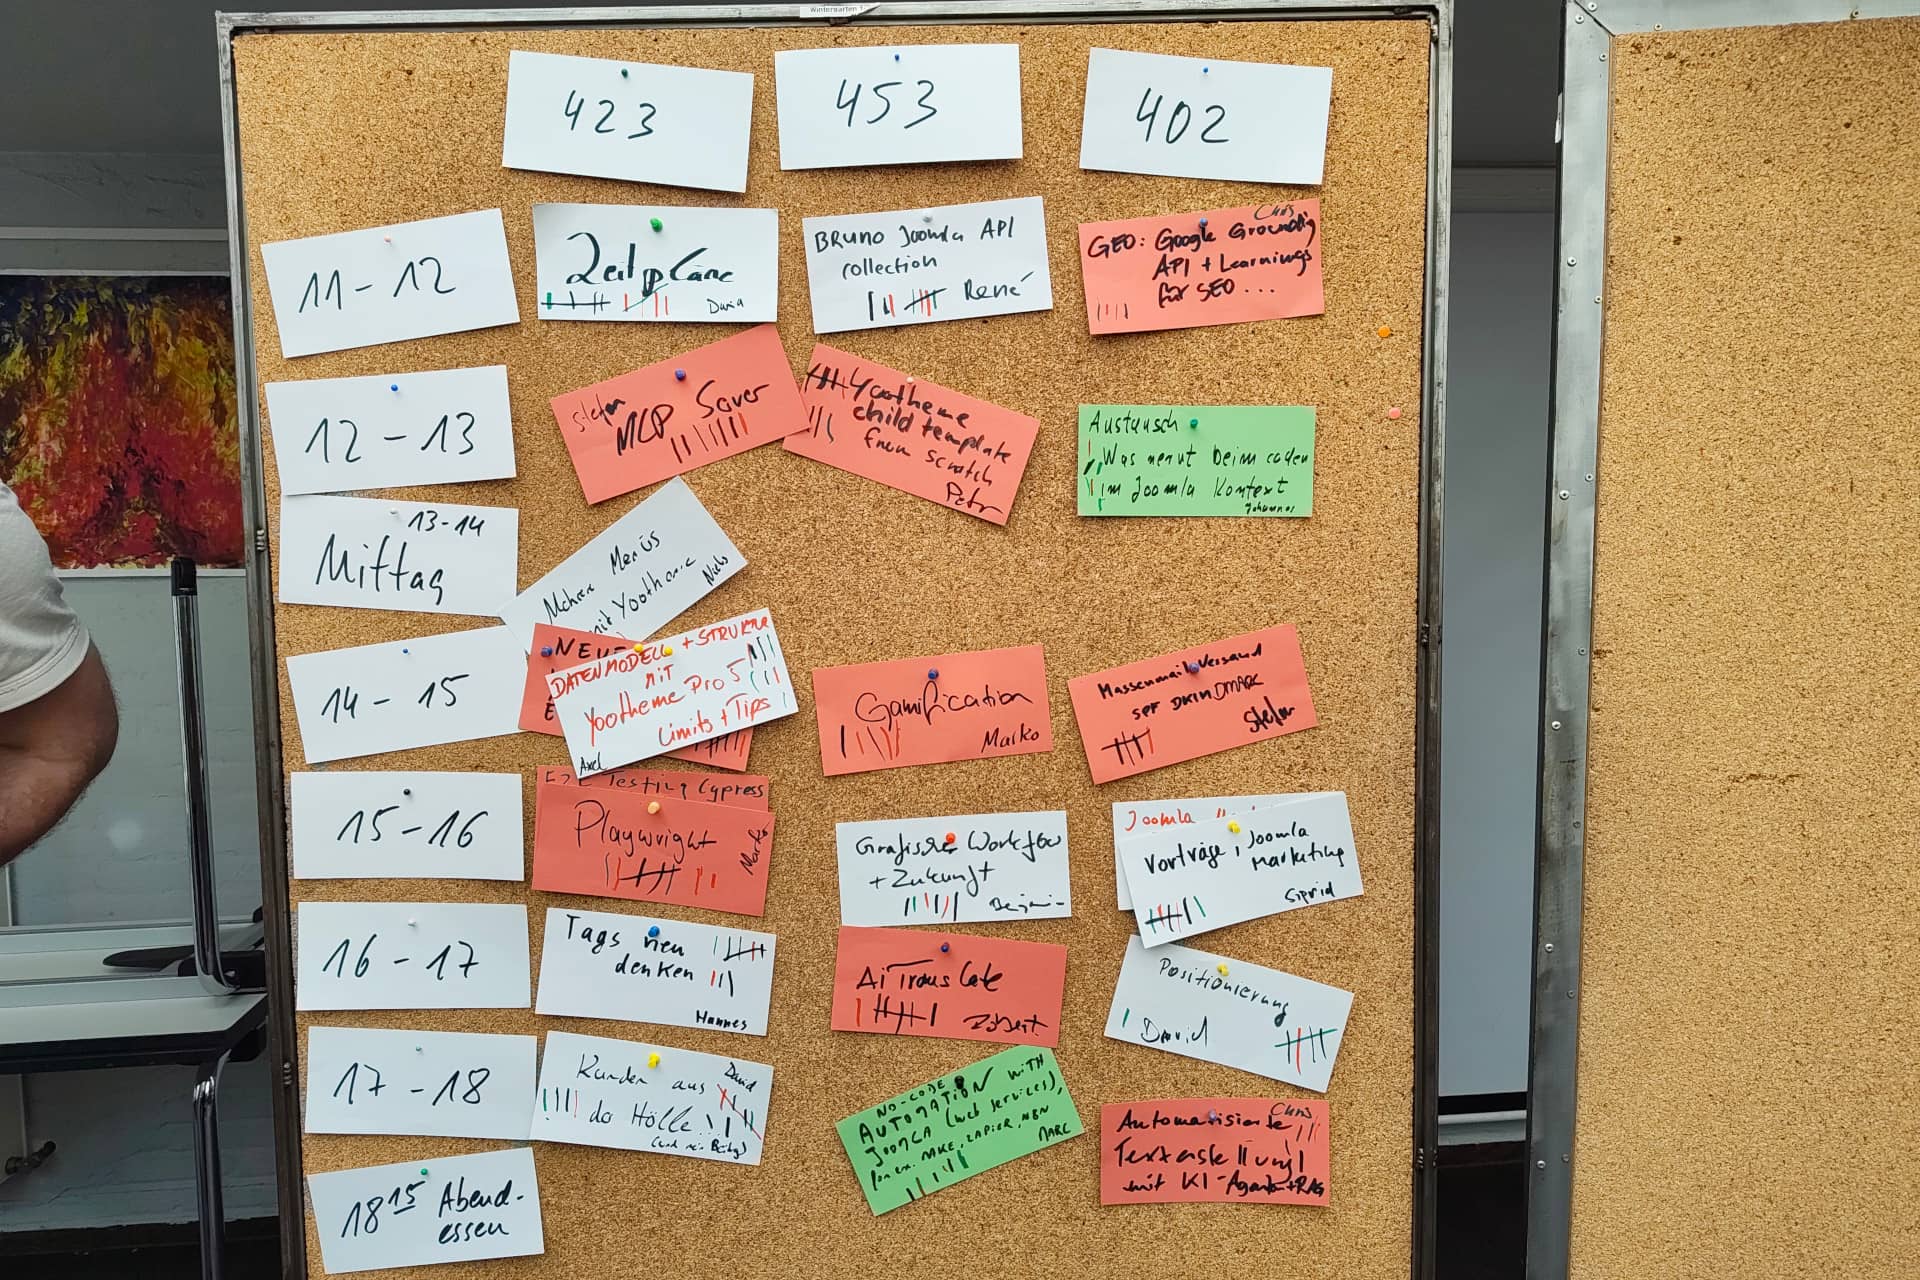 Wintergarten 1
423
453
402
11 - 12
Zeitpläne
BRUNO Joomla API
collection
René
Chris
GEO: Google Grounding
API + Learnings
für SEO ...
12 - 13
Stefan
MCP Server
Yootheme
child template
from scratch
Petr
Austausch
Was nervt beim coden
im Joomla Kontext
Johannes
13-14
Mittag
Mehrere Menüs
mit Yootheme
Niels
14 - 15
NEUE
DATENMODELL + STRUKTUR
mit
Yootheme Pro 5
Limits + Tips
Axel
Gamification
Marko
Massenmail Versand
SPF DKIM DMARC
Stefan
15-16
E2E Testing Cypress
Playwright
Marko
Grafischer Workflow
+ Zukunft
Benjamin
Joomla
Vorträge, Joomla
Marketing
Sigrid
16 - 17
Tags neu
denken
Hannes
AI Translate
Robert
Positionierung
David
17 - 18
Kunden aus
David
der Hölle!
NO-CODE
AUTOMATION WITH
JOOMLA (web services),
MAKE, ZAPIER, N8N
MARC
Chris
Automatisierte
Texterstellung
mit KI-Agenten + RAG
18 15 Abend-
essen